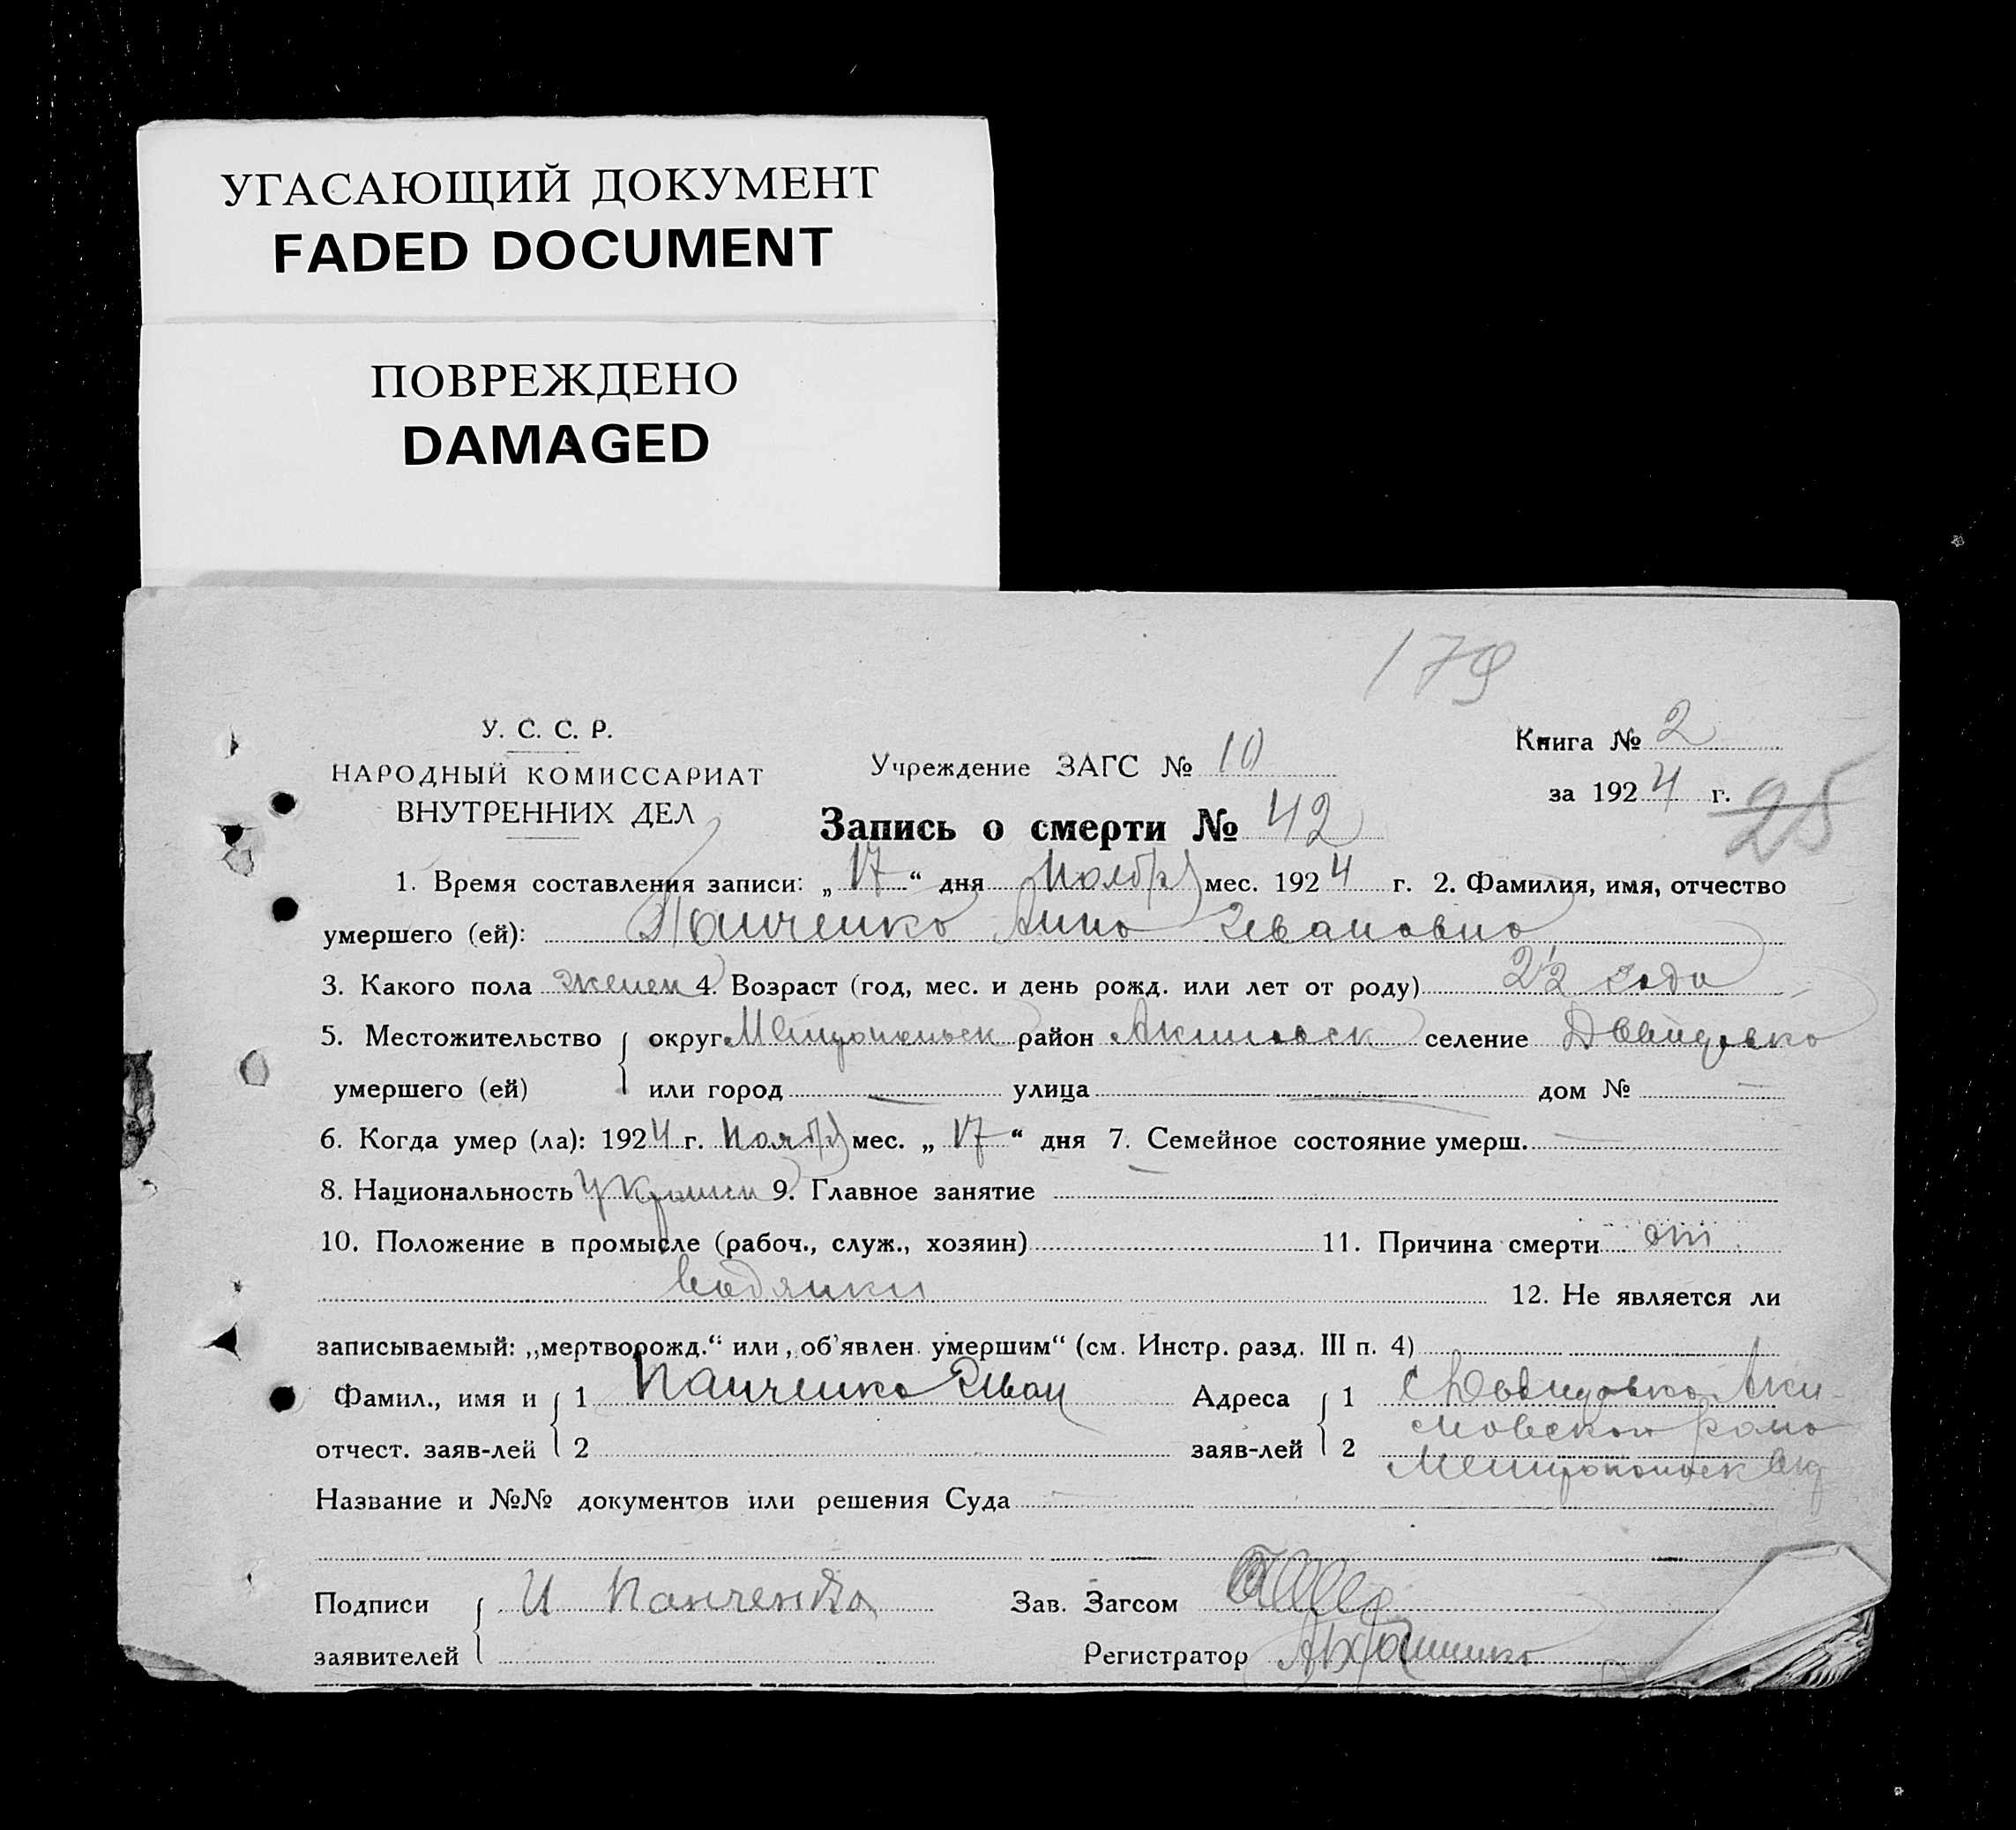 УГАСАЮЩИЙ ДОКУМЕНТ
FADED DOCUMENT
ПОВРЕЖДЕНО
DAMAGED
179
У. С. С. Р.
НАРОДНЫЙ КОМИССАРИАТ
ВНУТРЕННИХ ДЕЛ
Учреждение ЗАГС № 10
Книга № 2
за 1924 г.
25
Запись о смерти № 42
1. Время составления записи: „17“ дня Ноября мес. 1924 г. 2. Фамилия, имя, отчество
умершего (ей): Панченко Анна Ивановна
3. Какого пола женск 4. Возраст (год, мес. и день рожд. или лет от роду) 2½ года
5. Местожительство умершего (ей) { округ Мелитопольск район Акимовск селение Давидовка
или город — улица — дом № —
6. Когда умер (ла): 1924 г. Ноябр мес. „17“ дня 7. Семейное состояние умерш. —
8. Национальность Украин 9. Главное занятие —
10. Положение в промысле (рабоч., служ., хозяин) 11. Причина смерти от
водянки 12. Не является ли
записываемый: „мертворожд.“ или „об'явлен умершим“ (см. Инстр. разд. III п. 4)
Фамил., имя и отчест. заяв-лей { 1 Панченко Иван
2
Адреса заяв-лей { 1 С Давидовка Аки-
мовской рана
2 Мелитопольск Окр
Название и №№ документов или решения Суда —
Подписи заявителей { И Панченко
Зав. Загсом
Регистратор